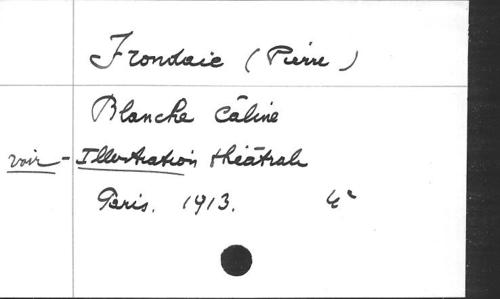 Frondaie (Pierre)
Blanche Câline
voir - Illustration théâtrale
Paris. 1913. 4°